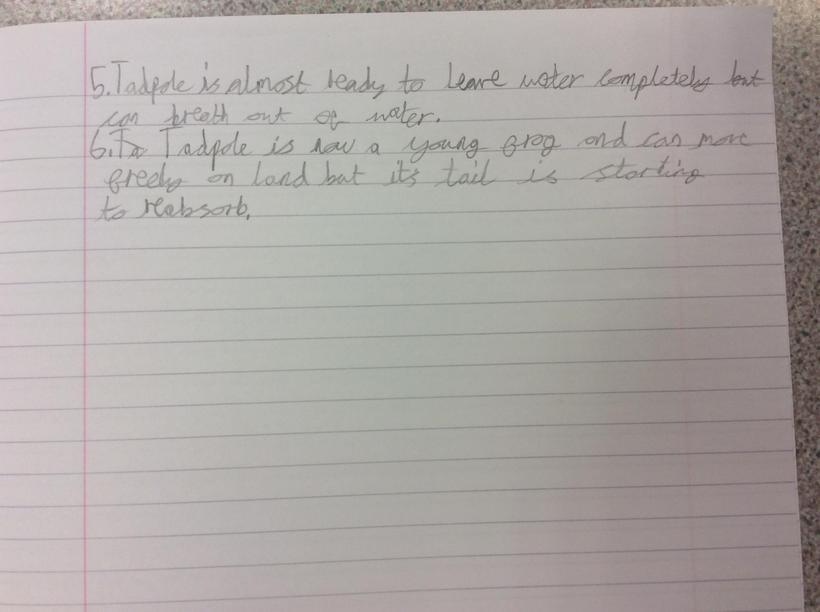 5. Tadpole is almost ready to leave water completely but
can breath out of water.
6. Ta Tadpole is now a young frog and can move
freely on land but its tail is starting
to reabsorb.